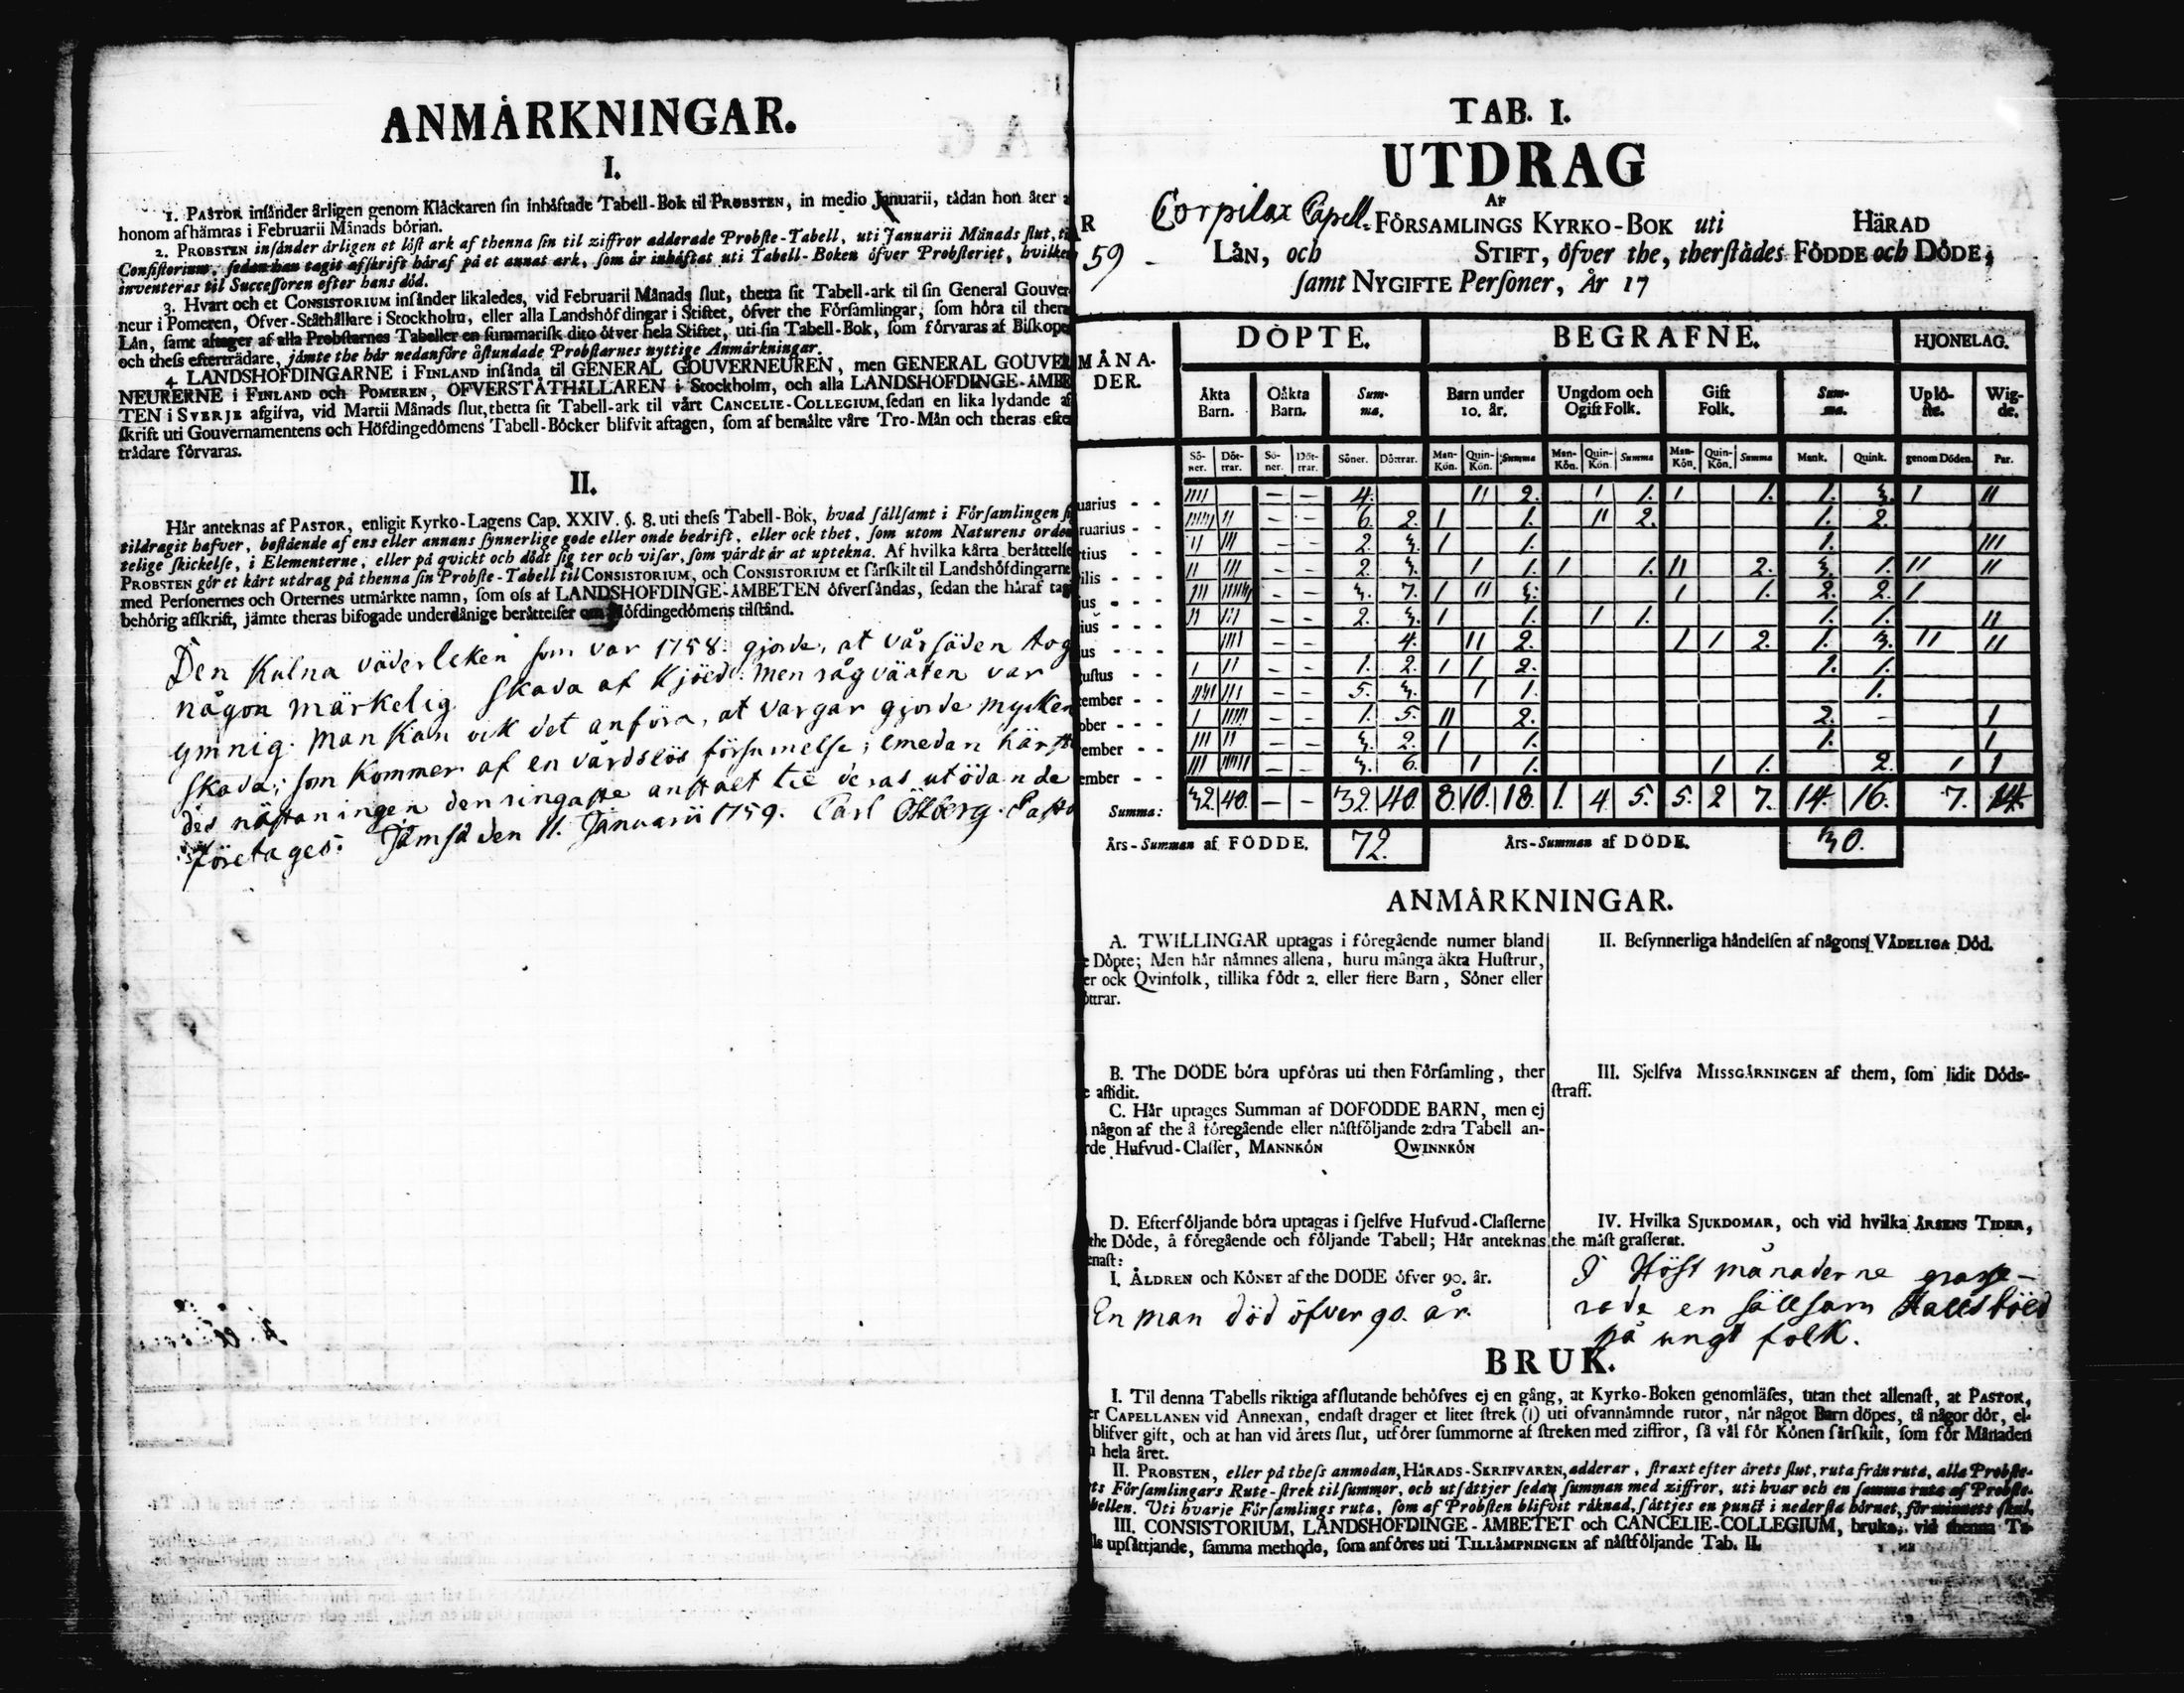 ANMÅRKNINGAR.
I.
1. PASTOR insånder årligen genom Klåckaren sin inhåftade Tabell-Bok til PROBSTEN, in medio Januarii, tådan hon åter
honom afhåmtas i Februarii Månads början.
2. PROBSTEN insånder årligen et löst ark af thenna sin til ziffror adderade Probste-Tabell, uti Januarii Månads slut,
Consistorium, sedan han tagit afskrift håraf på et annat ark, som år inhåftat uti Tabell-Boken öfver Probsteriet, hvilken
inventeras til Successoren efter hans död.
3. Hvart och et CONSISTORIUM insånder likaledes, vid Februarii Månads slut, thetta sit Tabell-ark til sin General Gouver-
neur i Pomeren, Öfver-Ståthållare i Stockholm, eller alla Landshöfdingar i Stiftet, öfver the Församlingar, som höra til thera
Lån, samt aftager af alla Probstarnes Tabeller en summarisk dito öfver hela Stiftet, uti sin Tabell-Bok, som förvaras af Biskopen
och thess efterträdare, jåmte the hår nedanföre åstundade Probstarnes nyttige Anmårkningar.
4. LANDSHÖFDINGARNE i FINLAND insånda til GENERAL GOUVERNEUREN, men GENERAL GOUVER
NEURERNE i FINLAND och POMEREN, ÖFVERSTÅTHÅLLAREN i Stockholm, och alla LANDSHÖFDINGE-ÅMBE
TEN i SVERJE afgifva, vid Martii Månads slut, thetta sit Tabell-ark til vårt CANCELIE-COLLEGIUM, sedan en lika lydande af
skrift uti Gouvernamentens och Höfdingedömens Tabell-Böcker blifvit aftagen, som af bemålte våre Tro-Mån och theras efter
trådare förvaras.
II.
Hår anteknas af PASTOR, enligit Kyrko-Lagens Cap. XXIV. §. 8. uti thess Tabell-Bok, hvad sållsamt i Församlingen
tildragit hafver, bestående af ens eller annans synnerlige gode eller onde bedrift, eller ock thet, som utom Naturens orden
telige skickelse, i Elementerne, eller på qvickt och dödt sig ter och visar, som vårdt år at uptekna. Af hvilka kårta beråttelser
PROBSTEN gör et kårt utdrag på thenna sin Probste-Tabell til CONSISTORIUM, och CONSISTORIUM et sårskilt til Landshöfdingarne
med Personernes och Orternes utmårkte namn, som oss af LANDSHÖFDINGE-ÅMBETEN öfversåndas, sedan the håraf tagit
behörig afskrift, jåmte theras bifogade underdånige beråttelser om Höfdingedömens tilstånd.
Den Kulna väderleken som var 1758. gjorde, at vårsäden tog
någon märkelig skada af kjöld. Men rågväxten var
ymnig. Man Kan ock det anföra, at vargar gjorde mycken
skada; som Kommer af en vårdslös försumelse; emedan här
des nästan ingen den ringaste anstalt til deras utödande
företages. Jämsä den 11. Januarii 1759. Carl Ökberg. Pasto
TAB. I.
UTDRAG
AF
Corpilax Capell-FÖRSAMLINGS KYRKO-BOK uti HÄRAD
R
59 -
LÅN, och STIFT, öfver the, therstådes FÖDDE och DÖDE,
samt NYGIFTE Personer, År 17
DÖPTE. BEGRAFNE. HJONELAG.
MÅNA-
DER.
Åkta Barn. Oåkta Barn. Sum-ma. Barn under 10. år. Ungdom och Ogift Folk. Gift Folk. Sum-ma. Uplö-ste. Wig-de.
Sö-ner. Döt-trar. Sö-ner. Döt-trar. Söner. Döttrar. Man-Kön. Quin-Kön. Summa Man-Kön. Quin-Kön. Summa Man-Kön. Quin-Kön. Summa Mank. Quink. genom Döden. Par.
uarius - - IIII – – 4. II 2. I 1. I 1. 1. 3. I II
ruarius - - IIIIII II – – 6. 2. I 1. II 2. 1. 2.
rtius - - II III – – 2. 3. I 1. 1. III
ilis - - - II III – – 2. 3. I 1. I 1. II 2. 3. 1. II II
jus - - - III IIIIIII – – 3. 7. I II 3. I 1. 2. 2. I
ius - - - II III – – 2. 3. I 1. I 1. 1. 1. II
us - - - IIII – – 4. II 2. I I 2. 1. 3. II II
gustus - - I II – – 1. 2. I I 2. 1. 1.
tember - - IIIII III – – 5. 3. I 1. 1.
ober - - - I IIIII – – 1. 5. II 2. 2. – I
vember - - III II – – 3. 2. I 1. 1. I
ember - - III IIIIII – – 3. 6. I 1. I 1. 2. I I
Summa: 32. 40. – – 32. 40. 8. 10. 18. 1. 4. 5. 5. 2 7. 14. 16. 7. 14.
Års-Summan af FÖDDE. 72. Års-Summan af DÖDE. 30.
ANMÅRKNINGAR.
A. TWILLINGAR uptagas i föregående numer bland
e Döpte; Men hår nåmnes allena, huru många åkta Hustrur,
er ock Qvinfolk, tillika födt 2. eller flere Barn, Söner eller
öttrar.
B. The DÖDE böra upföras uti then Församling, ther
e aflidit.
C. Hår uptages Summan af DÖFÖDDE BARN, men ej
någon af the å föregående eller nåstföljande 2:dra Tabell an-
rde Hufvud-Classer, MANNKÖN QWINNKÖN
D. Efterföljande böra uptagas i sjelfve Hufvud-Classerne
the Döde, å föregående och följande Tabell; Hår anteknas
enast:
I. ÅLDREN och KÖNET af the DÖDE öfver 90. år.
En man död öfver 90. år.
II. Besynnerliga håndelsen af någons VÅDELIGA Död.
III. Sjelfva MISSGÅRNINGEN af them, som lidit Döds-
straff.
IV. Hvilka SJUKDOMAR, och vid hvilka ÅRSENS TIDER,
the måst grasserat.
I Höst månaderne grasse-
rade en sällsam Hallsböld
på ungt folk.
BRUK.
I. Til denna Tabells riktiga afslutande behöfves ej en gång, at Kyrko-Boken genomlåses, utan thet allenast, at PASTOR,
er CAPELLANEN vid Annexan, endast drager et litet strek (I) uti ofvannåmnde rutor, når något Barn döpes, tå någor dör, el-
blifver gift, och at han vid årets slut, utförer summorne af streken med ziffror, så vål för Könen sårskilt, som för Månaden
hela året.
II. PROBSTEN, eller på thess anmodan, HÅRADS-SKRIFVAREN, adderar, straxt efter årets slut, ruta från ruta, alla Probste-
ts Församlingars Rute-strek til summor, och utsåttjer sedan summan med ziffror, uti hvar och en samma ruta af Probste-
bellen. Uti hvarje Församlings ruta, som af Probsten blifvit råknad, såttjes en punct i nedersta hörnet, för minnets skul.
III. CONSISTORIUM, LANDSHÖFDINGE-ÅMBETET och CANCELIE-COLLEGIUM, bruka, vid thenna Ta-
ls upsåttjande, samma methode, som anföres uti TILLÅMPNINGEN af nåstföljande Tab. II.